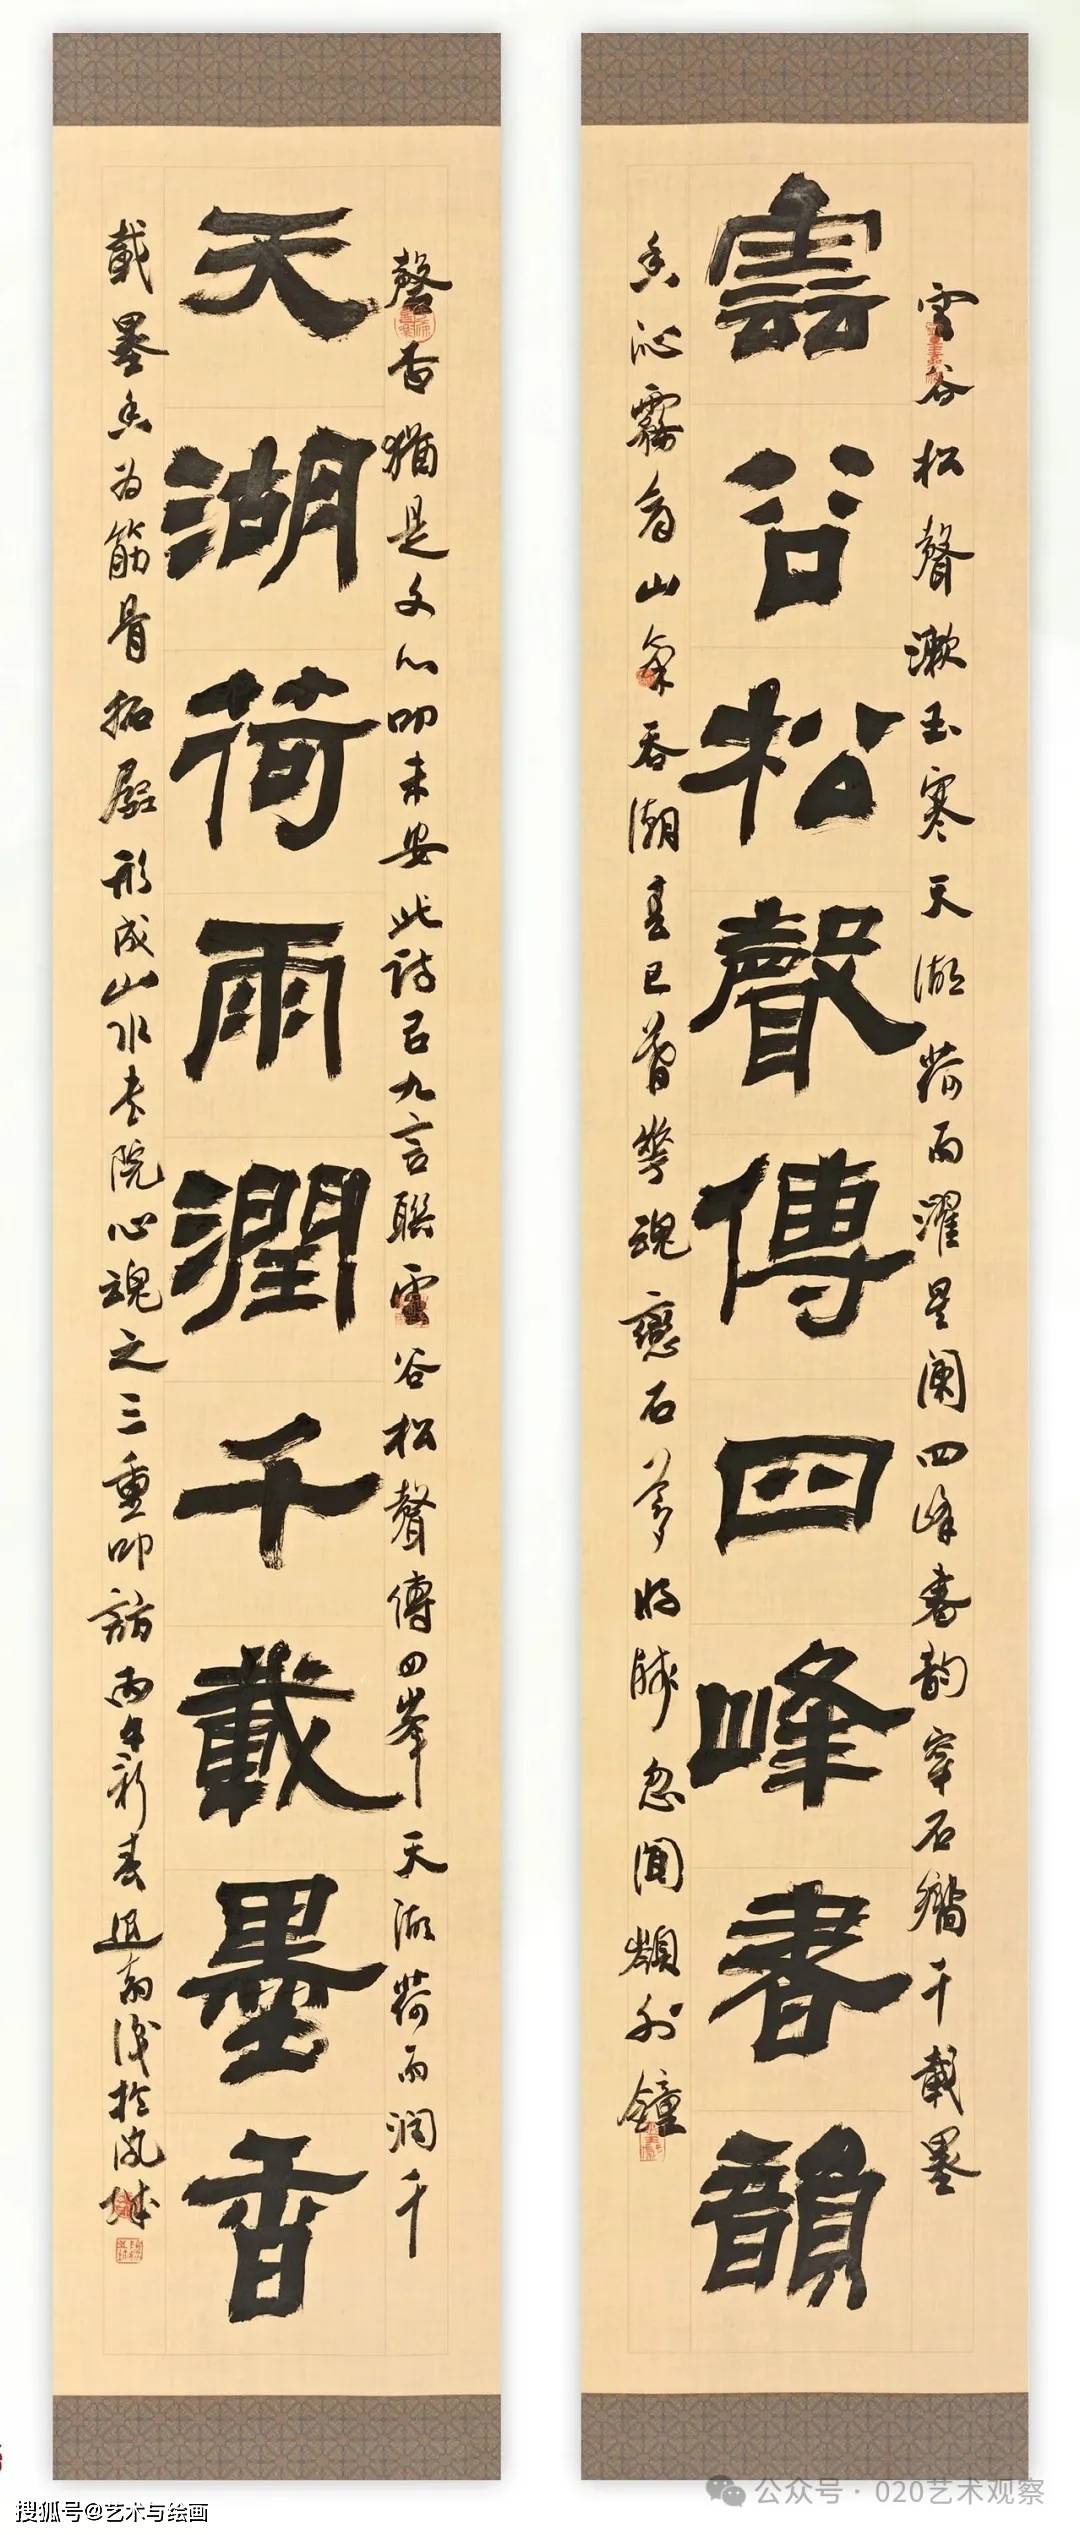 雲谷松聲漱玉寒天湖荷雨濯星闌四峰書韵穿石牖千載墨
雲谷松聲傳四峰書韻
香沁霧山氣吞潮春已魂戀石夢將忽闻巔外鐘
磬否猶是文心叩未安此詩吕九言聯雲谷松聲傳四峯天湖荷雨润千
天湖荷雨潤千載墨香
載墨香为筋骨拓展形成山水書院心魂之三重叩訪丙午新春退翁於城
搜狐号@艺术与绘画
公众号·020艺术观察